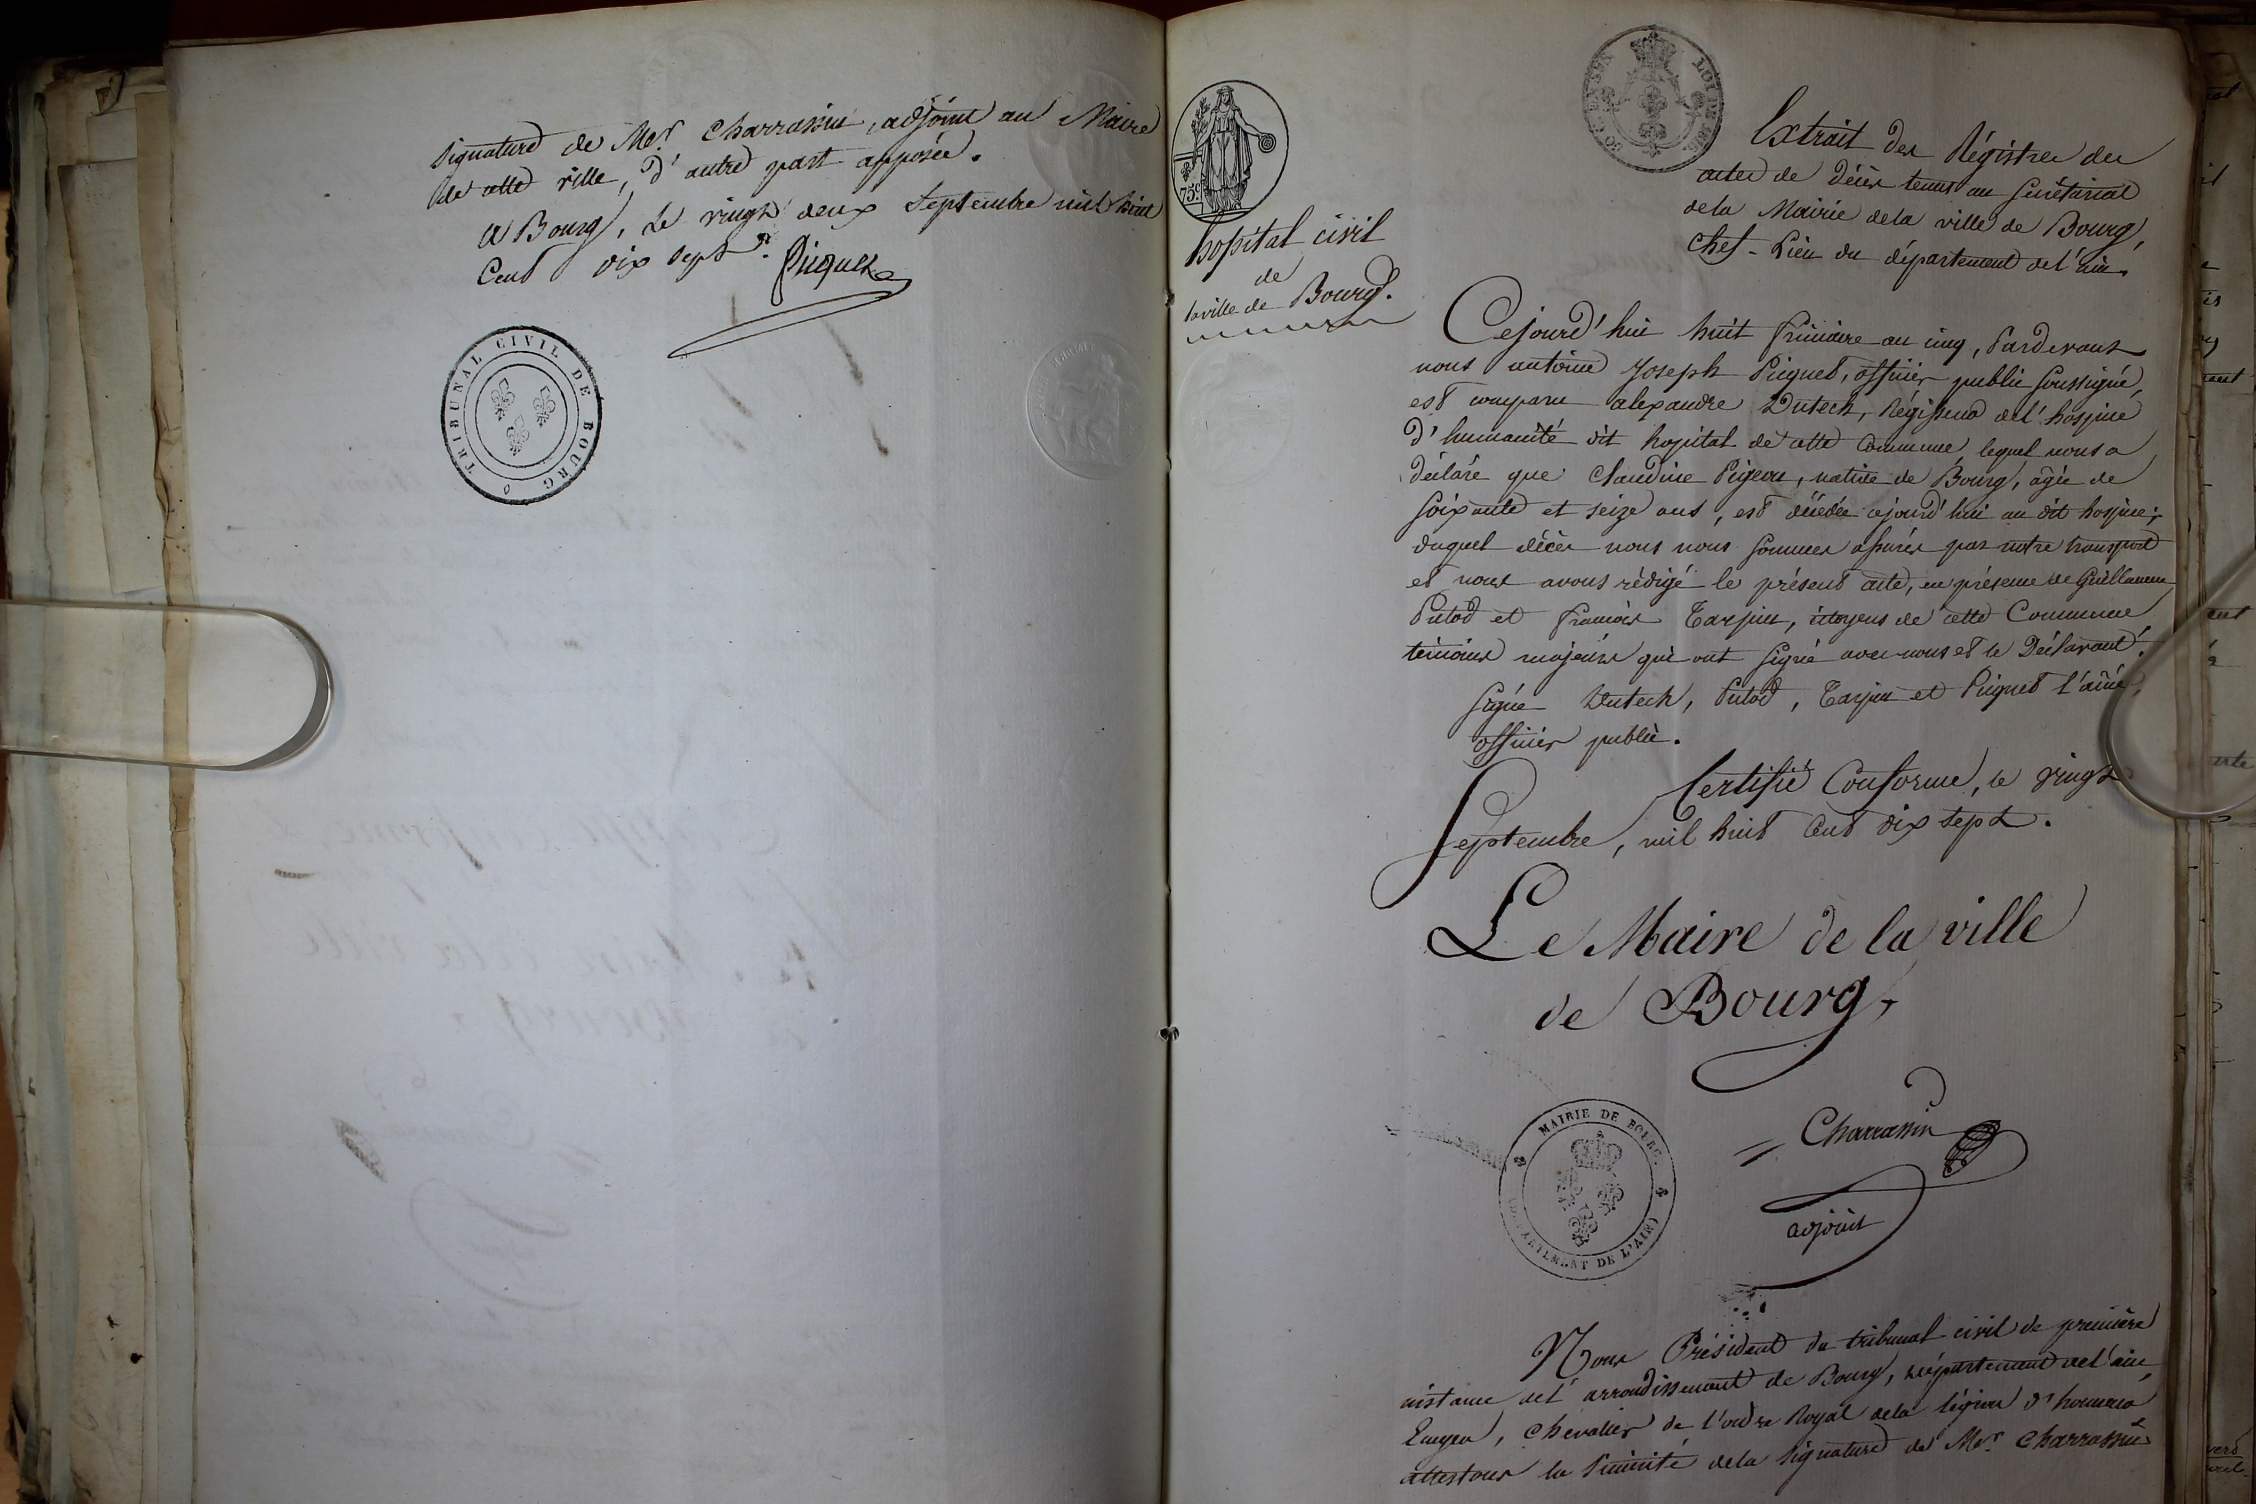 signature de Mr. Charrassin, adjoint au Maire
de cette ville, d'autre part apposée.
à Bourg, le vingt deux Septembre mil huit
Cent dix sept. Picquet
TRIBUNAL CIVIL DE BOURG
75c
hopital civil
de
la ville de Bourg.
Extrait des Régistres des
actes de décès tenus au Secrétariat
de la Mairie de la ville de Bourg,
Chef-Lieu du département de l'ain.
Cejourd'hui huit frimaire an cinq, Pardevant
nous antoine Joseph Picquet, officier public soussigné,
est comparu alexandre Dutech, Régisseur de l'hospice
d'humanité dit hopital de cette Commune, lequel nous a
déclaré que Claudine Pigeon, native de Bourg, âgée de
soixante et seize ans, est décédée cejourd'hui au dit hospice;
duquel décès nous nous sommes assurés par notre transport
et nous avons rédigé le présent acte, en présence de Guillaume
Putod et françois Tarpin, citoyens de cette Commune
témoins majeurs qui ont signé avec nous et le Déclarant.
signé Dutech, Putod, Tarpin et Picquet l'aîné,
officier public.
Certifié Conforme, le vingt
Septembre, mil huit Cent dix sept.
Le Maire de la ville
de Bourg,
MAIRIE DE BOURG
(DEPARTEMENT DE L'AIN)
Charrassin
adjoint
Nous Président du tribunal civil de première
instance de l'arrondissement de Bourg, département de l'ain,
Chevalier de l'ordre Royal de la légion d'honneur,
attestons la sincérité de la signature de Mr. Charrassin